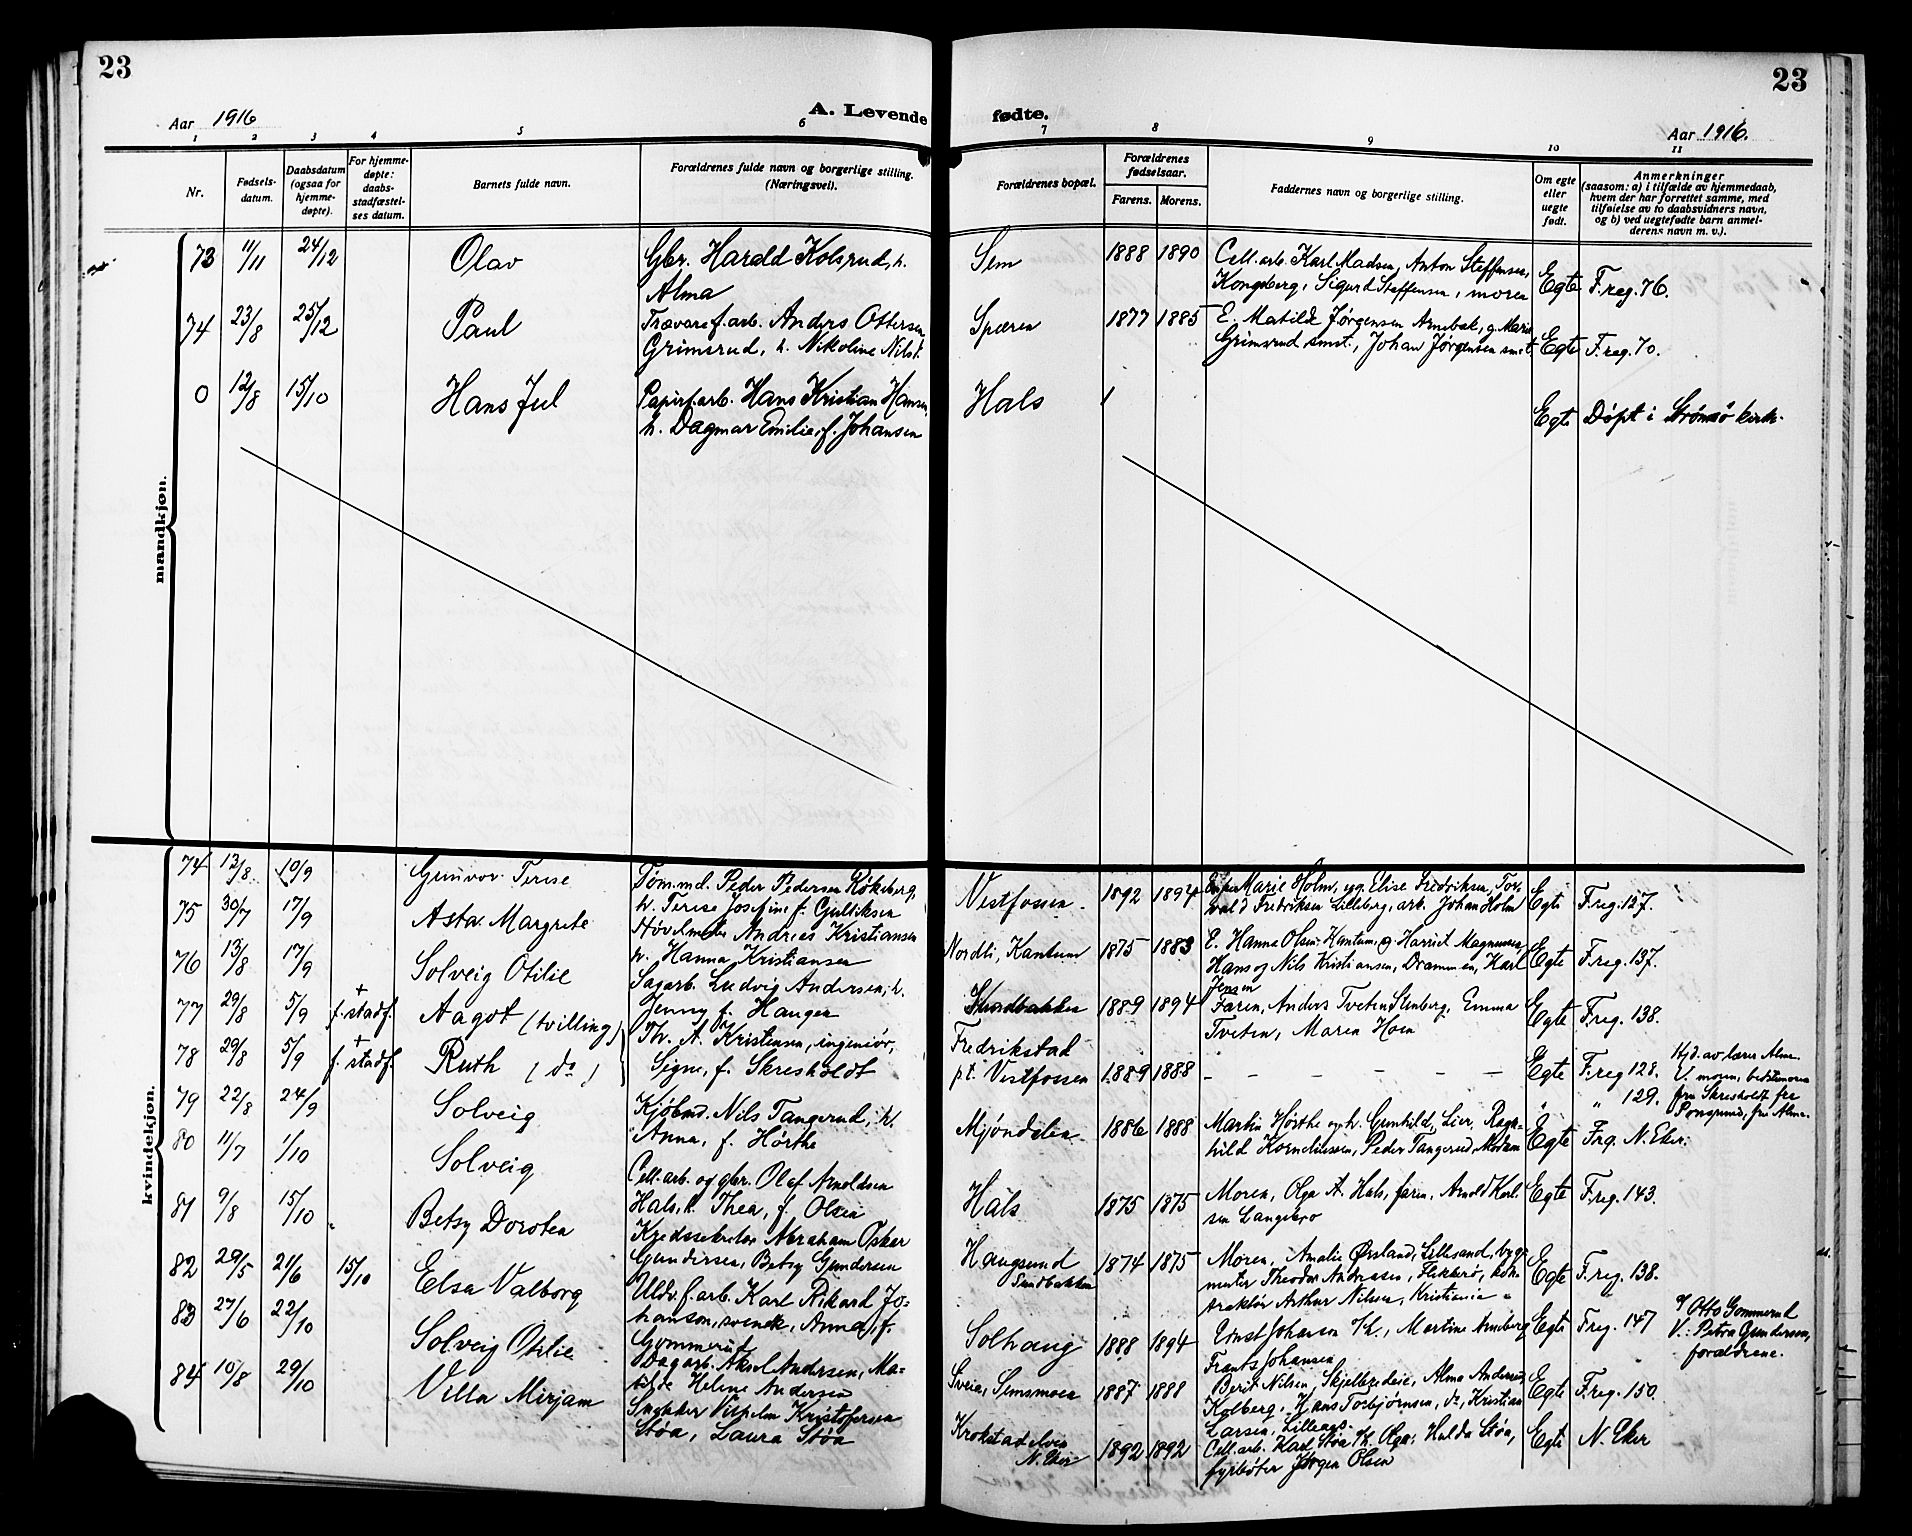 23
Aar 1916
A. Levende
1 2 3 4 5 6
Nr.
Fødsels-
datum.
Daabsdatum
(ogsaa for
hjemme-
døpte).
For hjemme-
døpte:
daabs-
stadfæstel-
ses datum.
Barnets fulde navn.
Forældrenes fulde navn og borgerlige stilling.
(Næringsvei).
mandkjøn.
73 11/11 24/12 Olav Gbr. Harald Kolsrud, h.
Alma
74 23/8 25/12 Paul Trævaref.arb. Anders Ottersen
Grimsrud, h. Nikoline Nilsd.
0 12/8 15/10 Hans Jul Papirf.arb. Hans Kristian Hansen,
h. Dagmar Emilie, f. Johansen
kvindekjøn.
74 13/8 10/9 Gunvor Terese Tøm.md. Peder Pedersen Kökeberg,
h. Terese Josefine f. Gulliksen
75 30/7 17/9 Asta Margrete Høvelmester Andreas Kristiansen
h. Hanna Kristiansen
76 13/8 17/9 Solveig Otilie Sagarb. Ludvig Andersen, h.
Jenny f. Hauger
77 29/8 5/9 + f. stadf. Aagot (tvilling) Th. A. Kristensen, ingeniør,
78 29/8 5/9 + f. stadf. Ruth (do) Signe, f. Skresholdt
79 22/8 24/9 Solveig Kjøbmd. Nils Tangerud, h.
Anna, f. Hørthe
80 11/7 1/10 Solveig Cell.arb. og gbr. Olaf Arnoldsen
Hals, h. Thea, f. Olsen
81 9/8 15/10 Betsy Dorotea Kredssekretær Abraham Oskar
Gundersen, Betsy Gundersen
82 29/5 21/6 15/10 Elsa Valborg Uldv.f.arb. Karl Rikard Jo-
hanson, svensk, Anna, f.
Gommerud
83 27/6 22/10 Solveig Otilie Dagarb. Aksel Andersen, Ma-
tilde Helene Andersen
84 10/8 29/10 Villa Mirjam Snekker Vilhelm Kristofersen
Støa, Laura Støa
23
fødte.
Aar 1916.
7 8 9 10 11
Forældrenes bopæl.
Forældrenes
fødselsaar.
Farens. Morens.
Faddernes navn og borgerlige stilling.
Om egte
eller
uegte
født.
Anmerkninger
(saasom: a) i tilfælde av hjemmedaab,
hvem der har forrettet samme, med
tilføielse av to daabsvidners navn,
og b) ved uegtefødte barn anmel-
derens navn m. v.).
Sem 1888 1890 Cell.arb. Karl Madsen, Anton Steffensen,
Kongsberg, Sigurd Steffensen, moren Egte F.reg. 76.
Spæren 1877 1885 E. Matilde Jørgensen Arnebak, g. Marie
Grimsrud smst., Johan Jørgensen smst. Egte F.reg. 70.
Hals Egte Døpt i Strømsø kirke.
Vestfossen 1892 1894 Marie Holm, ug. Elise Fredriksen, Tor-
vald Fredriksen Lilleberg, arb. Johan Holm Egte F.reg. 127.
Nordli, Kantum 1875 1883 E. Hanna Olsen Kantum, g. Harriet Magnussen,
Hans og Nils Kristiansen, Drammen, Karl
Jensen Egte F.reg. 137.
Sundbakken 1889 1894 Faren, Anders Tveten Stenberg, Emma
Tveten, Maren Hoen Egte F.reg. 138.
Fredrikstad
p.t. Vestfossen 1889 1888 – – – – – – Egte F.reg 128.
" " 129.
Hjd. av lærer Alme.
V. moren, bedstemoren
fru Skresholdt fra
Porsgrund, fru Alme.
Mjøndalen 1886 1888 Martin Hørthe og h. Gunhild, Lier, Ragn-
hild Korneliussen, Peder Tangerud, Modum Egte F.rg. N. Eker.
Hals 1875 1875 Moren, Olga A. Hals, faren, Arnold Karl-
sen Langebro Egte F.reg. 143.
Haugsund
Sundbakken 1874 1875 Moren, Amalie Ørsland, Lillesand, byg-
mester Theodor Andreassen, Flekkerø, kon-
traktør Arthur Nilsen, Kristiania Egte F.reg. 138.
Solhaug 1888 1894 Ernst Johanson Th., Martine Arneberg
Frants Johansen Egte F.reg. 147
Otto Gommerud
V.: Petra Gundersen,
forældrene.
Sveia, Semsmoen 1887 1888 Berit Nilsen, Skjelbredeie, Alma Andersen
Kolberg, Hans Torbjørnsen, do, Kristian
Larsen, Lilleags. Egte F.reg. 150.
Krokstadelven
N. Eker 1892 1892 Cell.arb. Karl Støa Th. Olga, Hulda Støa,
fyrbøter Jørgen Olsen Egte N. Eker